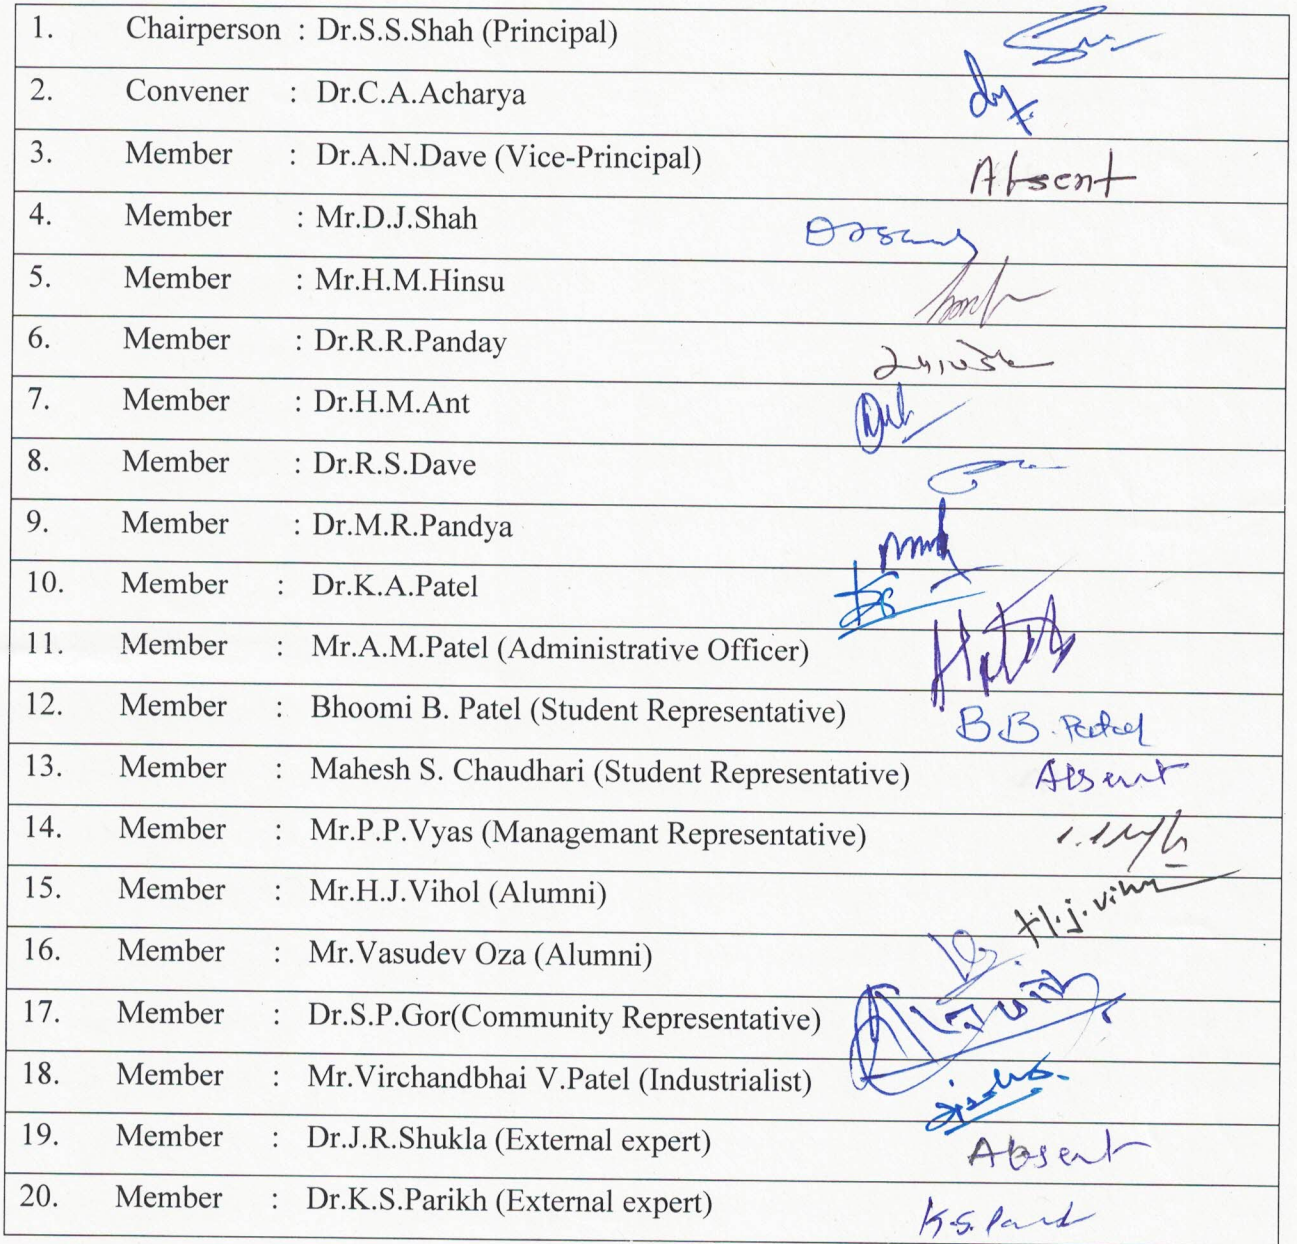 1. Chairperson : Dr.S.S.Shah (Principal)
2. Convener : Dr.C.A.Acharya
3. Member : Dr.A.N.Dave (Vice-Principal) Absent
4. Member : Mr.D.J.Shah
5. Member : Mr.H.M.Hinsu
6. Member : Dr.R.R.Panday
7. Member : Dr.H.M.Ant
8. Member : Dr.R.S.Dave
9. Member : Dr.M.R.Pandya
10. Member : Dr.K.A.Patel
11. Member : Mr.A.M.Patel (Administrative Officer)
12. Member : Bhoomi B. Patel (Student Representative) B.B. Patel
13. Member : Mahesh S. Chaudhari (Student Representative) Absent
14. Member : Mr.P.P.Vyas (Managemant Representative)
15. Member : Mr.H.J.Vihol (Alumni)
16. Member : Mr.Vasudev Oza (Alumni)
17. Member : Dr.S.P.Gor(Community Representative)
18. Member : Mr.Virchandbhai V.Patel (Industrialist)
19. Member : Dr.J.R.Shukla (External expert) Absent
20. Member : Dr.K.S.Parikh (External expert)